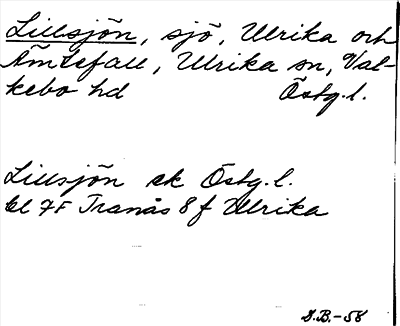 Lillsjön, sjö, Ulrika och
Åmtefall, Ulrika sn, Val-
kebo hd Östg.l.
Lillsjön ek Östg.l.
bl 7F Tranås 8f Ulrika
S.B.-58